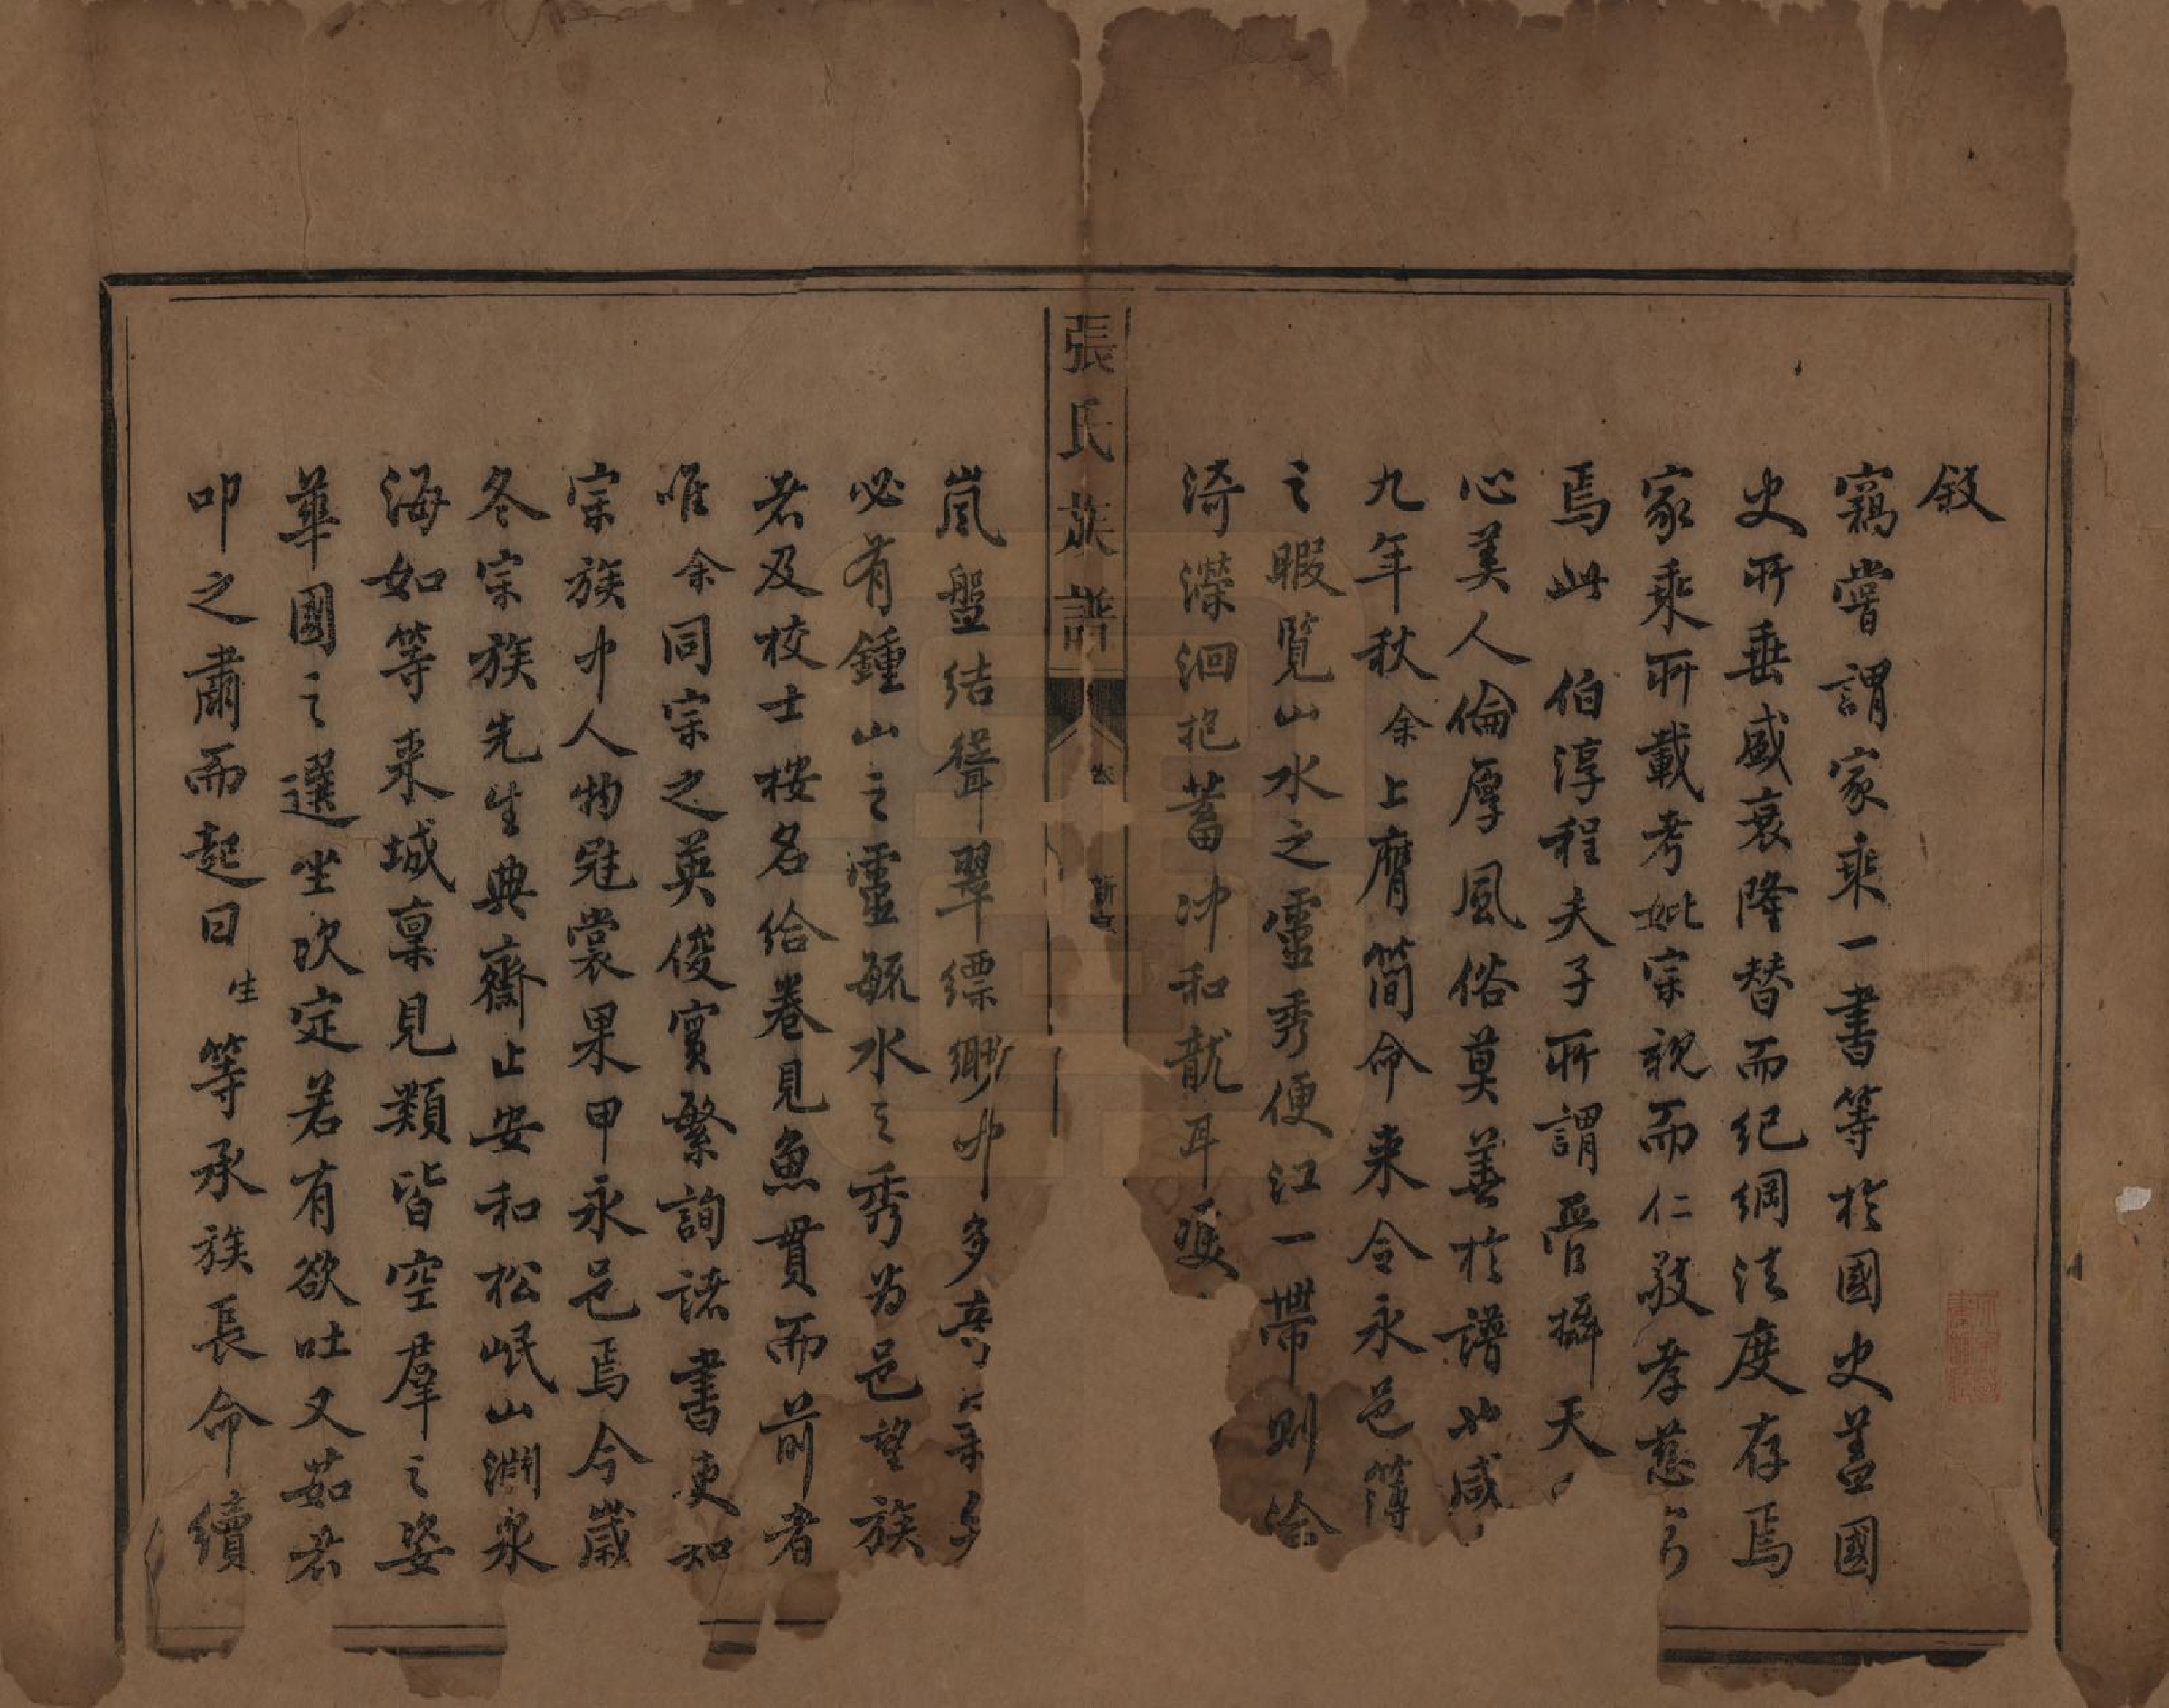 敘
竊嘗謂家乘一書等於國史蓋國
史所垂盛衰隆替而紀綱法度存焉
家乘所載考妣宗親而仁敬孝慈
焉此 伯淳程夫子所謂管攝天
心美人倫厚風俗莫善於譜也咸
九年秋余上膺簡命來令永邑簿
之暇覽山水之靈秀便江一帶則
漪濚洄抱蓄沖和龍耳雙
張氏族譜
嵐盤結聳翠縹緲中多
必有鍾山之靈毓水之秀為邑望族
者及校士按名給卷見魚貫而前者
唯余同宗之英俊實繁詢諸書吏知
宗族中人物冠裳果甲永邑焉今歲
冬宗族先生典齋止安和松岷山淵泉
海如等來城稟見類皆空羣之姿
華國之選坐次定若有欲吐又茹者
叩之肅而起曰生等承族長命續